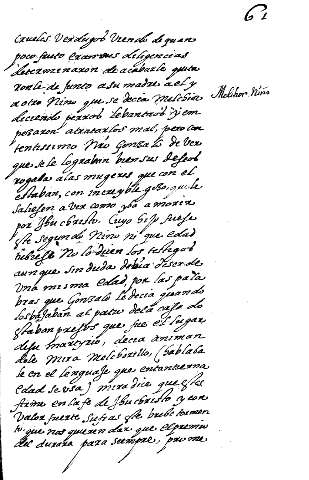 61
crueles Verdugos Viendo de quan
poco fruto eran sus diligencias
determinaron de acabarle quita
ronle de junto a su madre a el y
a otro Niño que se decia Melchior
diciendo perros lebantaos y em
pesaron a tratarlos mal, pero con
tentissimo Nro Gonzalo de ver
que se le lograban bien sus deseos
rogaba a las mugeres que con el
estaban, con increyble gozo, que le
saliesen a ver como yba a morir
por Jhu christo. Cuyo hijo fuese
este segundo Niño ni que edad
tubiese No lo dicen los testigos
aunque sin duda debia de ser de
una misma edad, por las pala
bras que Gonzalo le decia quando
los bajaban al patio de la casa do
estaban presos que fue el lugar
de su martyrio, decia animan
dole Mira Melchorillo, (hablaba
le en el lenguaje que en tan tierna
edad se usa) mira dice que estes
firme en la fe de Jhu christo y con
Valor fuerte sufras este brebe tormen
to. que nos quieren dar que el premio
del durara para siempre, pro me
Melchor Niño